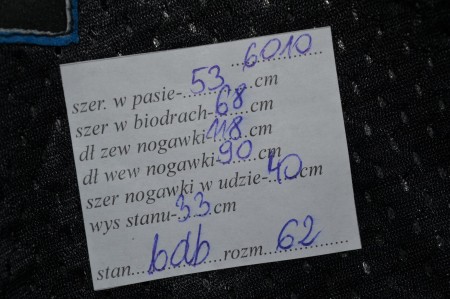 6010
szer. w pasie-53cm
szer w biodrach-68cm
dł zew nogawki-118cm
dł wew nogawki-90cm
szer nogawki w udzie-40cm
wys stanu-33cm
stan bdb rozm 62